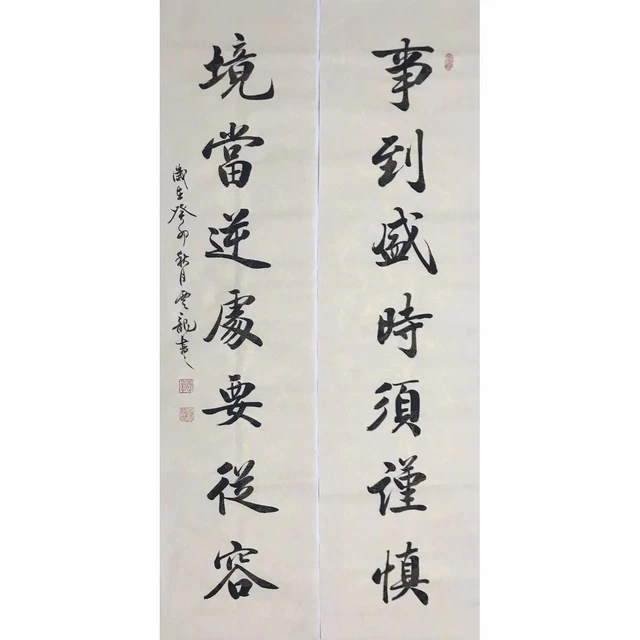 事到盛時須謹慎
境當逆處要從容
歲在癸卯秋月雲龍書